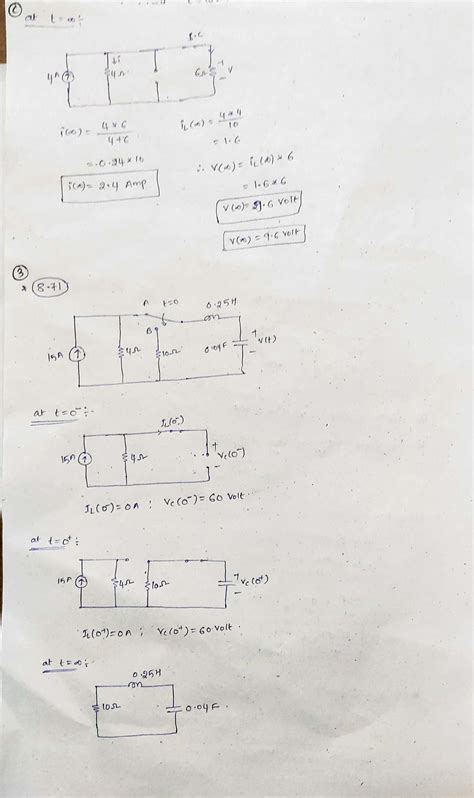 ② at t=∞:
iL
↓i
4A
4Ω
6Ω
+
v
-
i(∞) = 4×6 / 4+6
iL(∞) = 4×4 / 10
= 0.24×10
= 1.6
i(∞) = 2.4 Amp
∴ V(∞) = iL(∞) × 6
= 1.6×6
V(∞) = 9.6 Volt
V(∞) = 9.6 Volt
③
* 8.71
A t=0 0.25H
B
15A 4Ω 10Ω 0.04F + v(t) -
at t=0⁻:-
IL(0⁻)
15A 4Ω + Vc(0⁻) -
IL(0⁻)=0A ; Vc(0⁻)=60 Volt.
at t=0⁺:
15A 4Ω 10Ω + Vc(0⁺) -
IL(0⁺)=0A ; Vc(0⁺)=60 Volt.
at t=∞:
0.25H
10Ω 0.04F.